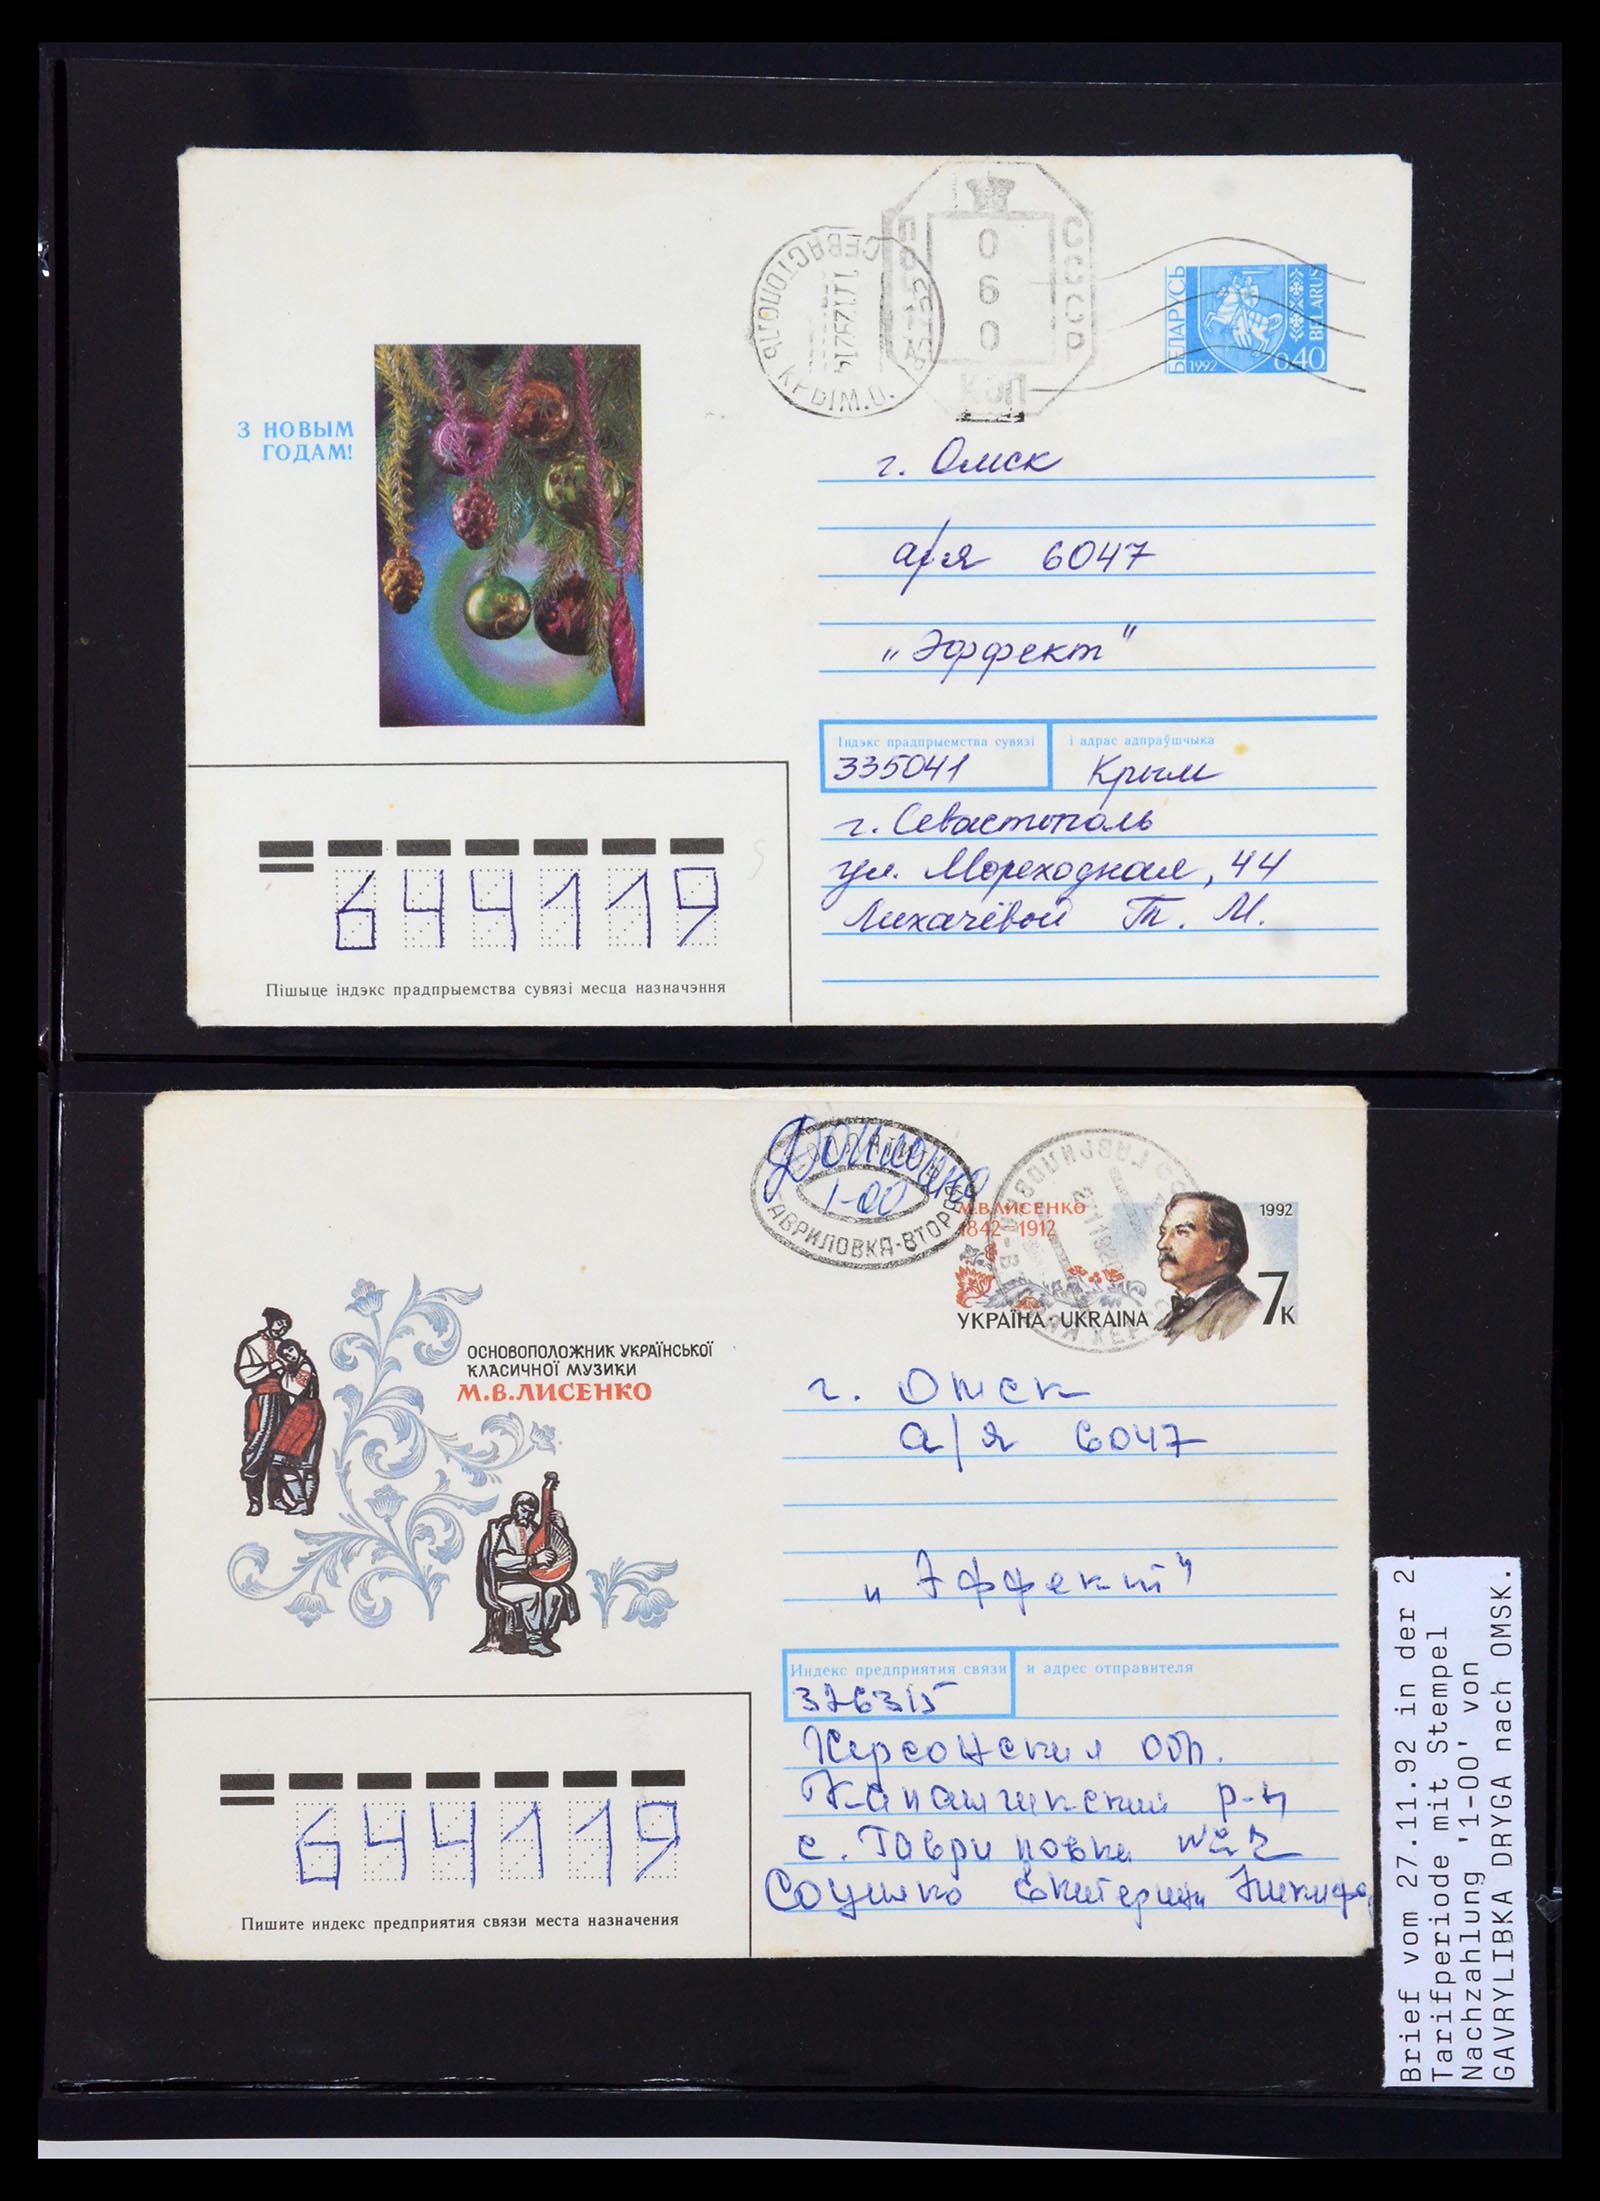 СЕВАСТОПОЛЬ
КРЫМ.О.
ПОЧТА
СССР
0
6
0
КОП
БЕЛАРУСЬ
1992
0.40
BELARUS
З НОВЫМ
ГОДАМ!
г. Омск
а/я 6047
„Эффект"
Індэкс прадпрыемства сувязі
і адрас адпраўшчыка
335041
Крым
г. Севастополь
ул. Мореходная, 44
Лихачёвой Т. М.
644119
Пішыце індэкс прадпрыемства сувязі месцаназначэння
Доплачено
1-00
ГАВРИЛОВКА-ВТОРАЯ
М.В.ЛИСЕНКО
1842-1912
1992
7к
УКРАЇНА · UKRAINA
ОСНОВОПОЛОЖНИК УКРАЇНСЬКОЇ
КЛАСИЧНОЇ МУЗИКИ
М.В.ЛИСЕНКО
г. Омск
а/я 6047
„Эффект"
Индекс предприятия связи
и адрес отправителя
326315
Херсонская обл.
р-н
с. Гавриловка №2
Екатерина
644119
Пишите индекс предприятия связи места назначения
Brief vom 27.11.92 in der 2.
Tarifperiode mit Stempel
Nachzahlung '1-00' von
GAVRYLIBKA DRYGA nach OMSK.